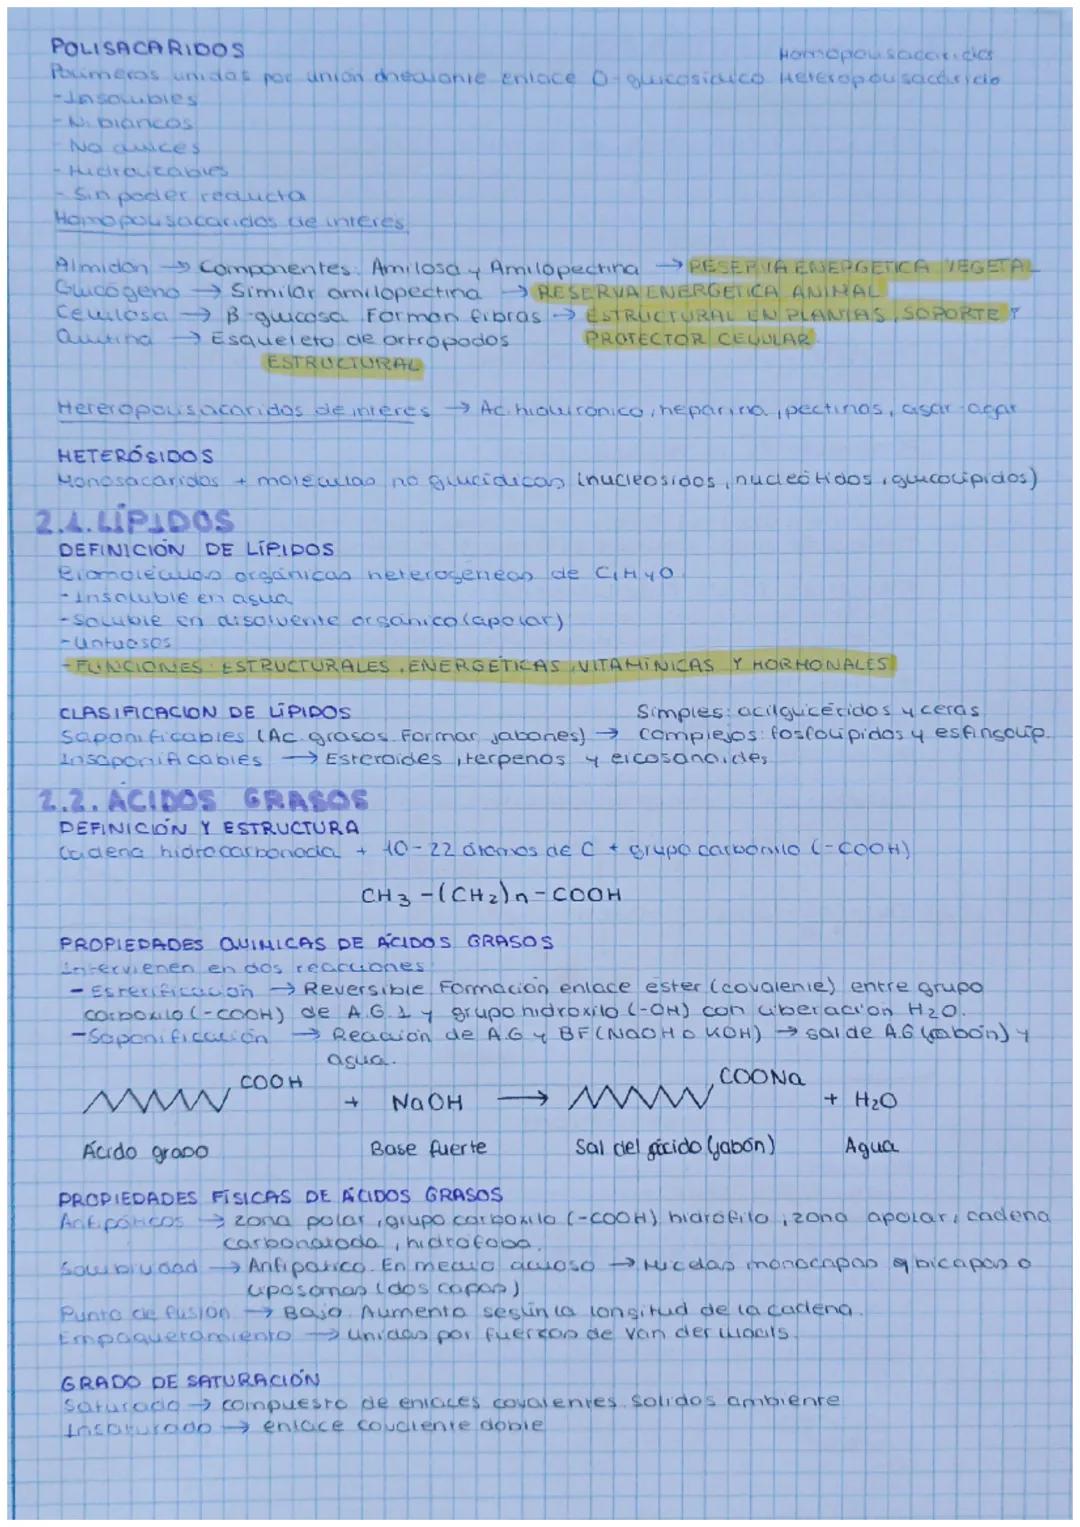 POLISACARIDOS
Homopolisacaridos
Polimeros unidos por unión mediante enlace O-glucosidico Heteropolisacarido
-Insolubles
-N. blancos
-No dulces
-Hidrolizables
-Sin poder reducta
Homopolisacaridos de interes
Almidón → Componentes: Amilosa y Amilopectina → RESERVA ENERGETICA VEGETAL
Glucógeno → Similar amilopectina → RESERVA ENERGETICA ANIMAL
Celulosa → β-glucosa Forman fibras → ESTRUCTURAL EN PLANTAS, SOPORTE Y
PROTECTOR CELULAR
Quitina → Esqueleto de artropodos
ESTRUCTURAL
Heteropolisacaridos de interes → Ac. hialuronico, heparina, pectinas, agar-agar
HETERÓSIDOS
Monosacaridos + moleculas no glucidicas (nucleosidos, nucleótidos, glucolipidos)
2.1. LÍPIDOS
DEFINICIÓN DE LÍPIDOS
Biomoléculas orgánicas heterogeneas de C, H y O
-Insoluble en agua
-Soluble en disolvente orgánico (apolar)
-Untuosos
-FUNCIONES ESTRUCTURALES, ENERGÉTICAS, VITAMÍNICAS Y HORMONALES
CLASIFICACION DE LÍPIDOS
Simples: acilglicéridos y ceras
Saponificables (Ac. grasos. Formar jabones) → Complejos: fosfolipidos y esfingolip.
Insaponificables → Esteroides, terpenos y eicosanoides
2.2. ÁCIDOS GRASOS
DEFINICIÓN Y ESTRUCTURA
Cadena hidrocarbonada + 10-22 átomos de C + grupo carbonilo (-COOH)
CH3 -(CH2)n-COOH
PROPIEDADES QUIMICAS DE ÁCIDOS GRASOS
Intervienen en dos reacciones:
-Esterificación → Reversible. Formación enlace ester (covalente) entre grupo
carboxilo (-COOH) de A.G. 1 y grupo hidroxilo (-OH) con liberación H2O.
-Saponificación → Reacción de A.G y BF (NaOH o KOH) → sal de A.G (jabón) y
agua.
COOH + NaOH → COONa + H2O
Ácido graso Base fuerte Sal del ácido (jabón) Agua
PROPIEDADES FÍSICAS DE ÁCIDOS GRASOS
Anfipáticos → zona polar, grupo carboxilo (-COOH) hidrófilo, zona apolar, cadena
carbonatada, hidrófoba.
Solubilidad → Anfipático. En medio acuoso → Micelas monocapas o bicapas o
liposomas (dos capas)
Punto de fusión → Bajo. Aumenta según la longitud de la cadena.
Empaquetamiento → Unidas por fuerzas de Van der Waals.
GRADO DE SATURACIÓN
Saturado → compuesto de enlaces covalentes. Solidos ambiente
Insaturado → enlace covalente doble